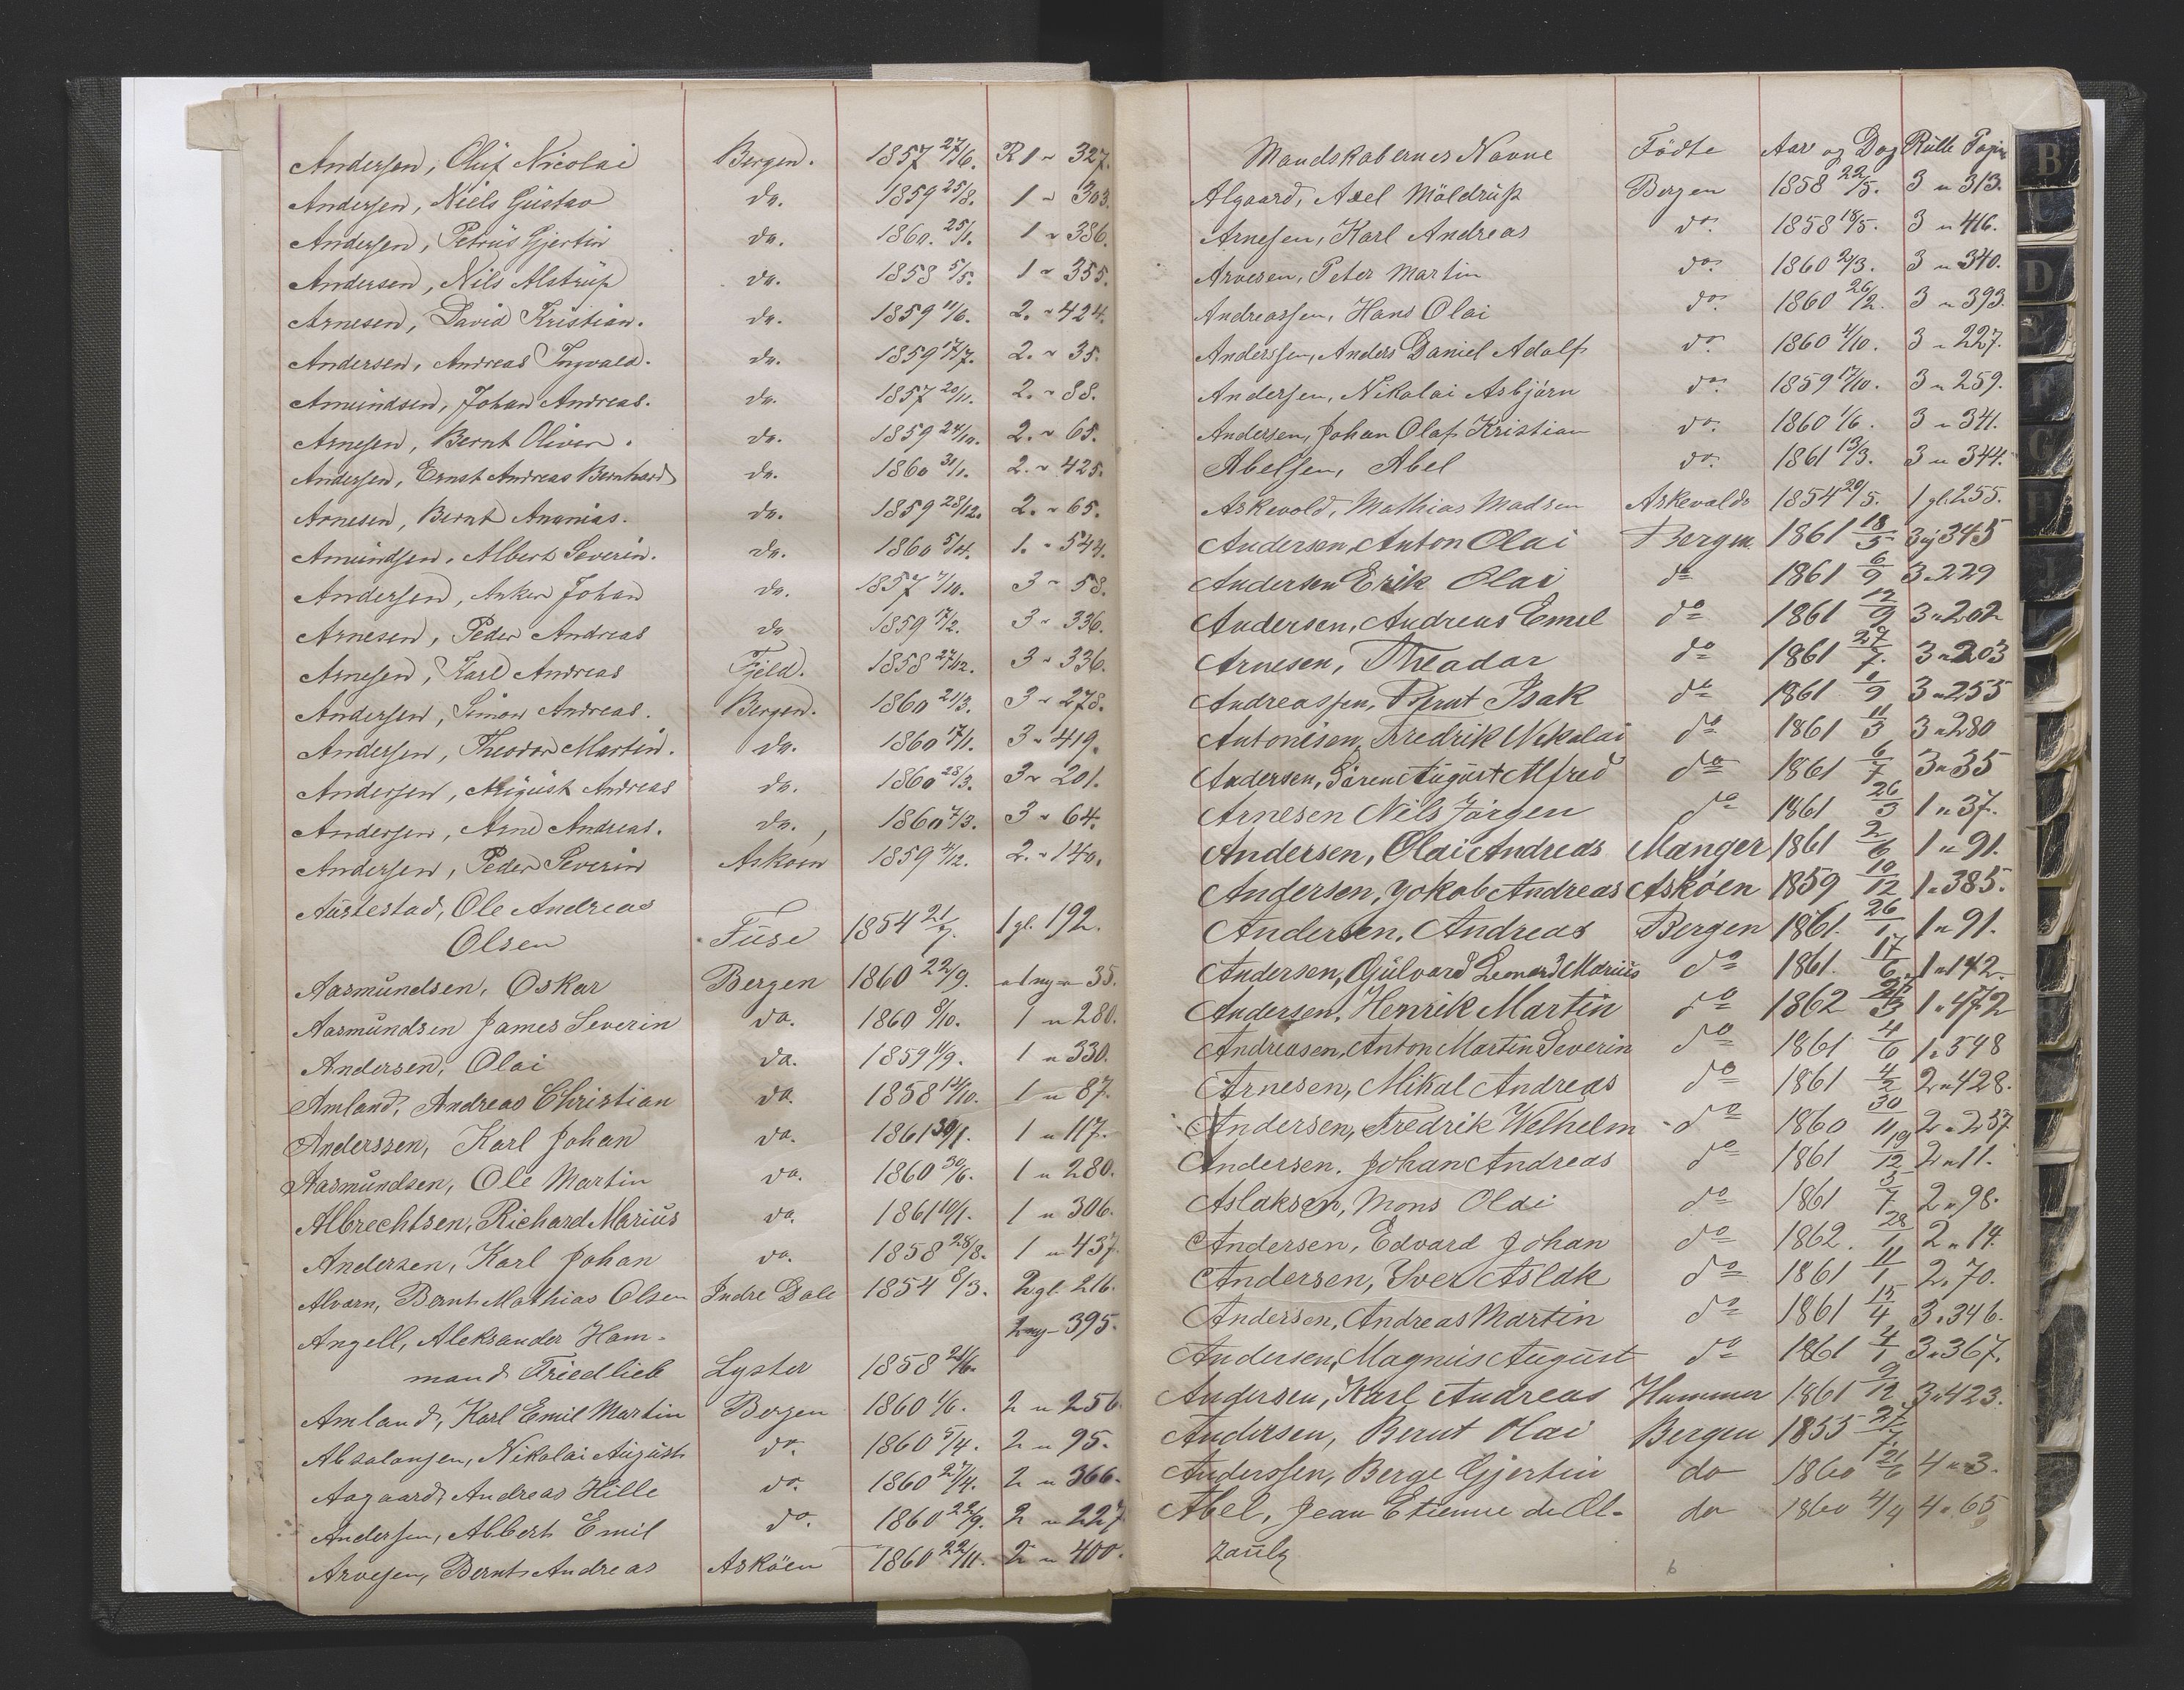 Andersen, Oluf Nicolai Bergen. 1857 27/6. R 1 " 327.
Andersen, Niels Gustav do. 1859 25/8. 1 " 303.
Andersen, Petrus Gjertin do. 1860. 25/1. 1 " 386.
Andersen, Nils Alstrup do. 1858 5/5. 1 " 355.
Arnesen, David Kristian. do. 1859 11/6. 2. " 424.
Andersen, Andreas Ingvald. do. 1859 17/7. 2. " 35.
Amundsen, Johan Andreas. do. 1857 20/11. 2. " 88.
Arnesen, Bernt Oliver. do. 1859 24/10. 2. " 65.
Andersen, Ernst Andreas Bernhard do. 1860 31/1. 2. " 425.
Arnesen, Bernt Ananias. do. 1859 28/12. 2. " 65.
Amundsen, Albert Severin. do. 1860 5/4. 1. " 544.
Andersen, Anker Johan do. 1857 7/10. 3 " 58.
Arnesen, Peder Andreas do 1859 17/2. 3 " 336.
Arnesen, Karl Andreas Fjeld. 1858 27/12. 3 " 336.
Andersen, Simon Andreas. Bergen. 1860 21/3. 3 " 278.
Andersen, Theodor Martin. do. 1860 17/1. 3 " 419.
Andersen, August Andreas do. 1860 28/3. 3 " 201.
Andersen, Arne Andreas. do. 1860 7/3. 3 " 64.
Andersen, Peder Severin Askøen 1859 4/12. 2. " 140.
Austestad, Ole Andreas
Olsen Fuse 1854 21/7. 1 gl. 192.
Aasmundsen, Oskar Bergen 1860 22/9. 1 ny " 35.
Aasmundsen James Severin do. 1860 8/10. 1 " 280.
Andersen, Olai do. 1859 11/9. 1 " 330.
Amland, Andreas Christian do. 1858 14/10. 1 " 87.
Anderssen, Karl Johan do. 1861 30/1. 1 " 117.
Aasmundsen, Ole Martin do. 1860 30/6. 1 " 280.
Albrechtsen, Richard Marius do. 1861 10/1. 1 " 306.
Andersen, Karl Johan do. 1858 28/8. 1 " 437.
Alvern, Bernt Mathias Olsen Indre Dale 1854 8/3. 2 gl. 216.
Angell, Aleksander Ham- 2 ny " 395.
mand Friedlieb Lyster 1858 21/6.
Amland, Karl Emil Martin Bergen 1860 1/6. 2 " 256
Absalonsen, Nikolai August do. 1860 5/4. 2 " 95.
Aagaard, Andreas Hille do. 1860 27/4. 2 " 366.
Andersen, Albert Emil do. 1860 22/9. 2 " 227
Arvesen, Bernt Andreas Askøen 1860 22/11. 2 " 400.
Mandskabernes Navne Fødte Aar og Dag Rulle Pagina
Algaard, Axel Møldrup Bergen 1858 22/5. 3 " 313.
Arnesen, Karl Andreas do. 1858 18/5. 3 " 416.
Arvesen, Peter Martin do. 1860 2/3. 3 " 340.
Andreassen, Hans Olai do. 1860 26/2. 3 " 393.
Anderssen, Anders Daniel Adolf do. 1860 4/10. 3 " 227.
Andersen, Nikolai Asbjørn do. 1859 17/10. 3 " 259.
Andersen, Johan Olaf Kristian do. 1860 1/6. 3 " 341.
Abelsen, Abel do. 1861 13/3. 3 " 344.
Askevold, Mathias Madsen Askevolds 1854 20/5. 1 gl. 255.
Andersen, Anton Olai Bergen 1861 18/5 3 ny 345
Andersen Erik Olai do 1861 6/9 3 " 229
Andersen, Andreas Emel do 1861 12/9 3 " 202
Arnesen, Theadar do 1861 27/7. 3 " 203
Andreassen, Bernt Isak do 1861 1/9 3 " 255
Antonisen, Fredrik Nikolai do 1861 11/3 3 " 280
Andersen, Søren August Alfred do 1861 6/7 3 " 35
Arnesen Nils Jørgen do 1861 26/3 1 " 37.
Andersen, Olai Andreas Manger 1861 2/6 1 " 91.
Andersen, Jokob Andreas Askøen 1859 10/12 1 " 385.
Andersen, Andreas Bergen 1861. 26/1 1 " 91.
Andersen, Gulvard Leonard Marius do 1861. 17/6 1 " 142.
Andersen, Henrik Martin do 1862 1 " 472
Andreasen, Anton Martin Severin do 1861 4/6 1 " 548
Arnesen, Mikal Andreas do 1861 4/2 2 " 428.
Andersen, Fredrik Welhelm do 1860 30/11 2 " 237
Andersen, Johan Andreas do 1861 19/12 2 " 11.
Aslaksen, Mons Olai do 1861 3/7 2 " 98.
Andersen, Edvard Johan do 1862. 28/1 2 " 14.
Andersen, Iver Aslak do 1861 11/1 2 " 70.
Andersen, Andreas Martin do 1861 15/4 3 " 346.
Andersen, Magnus August do 1861 4/1 3 " 367.
Andersen, Karl Andreas Hammer 1861 9/12 3 " 423.
Andersen, Bernt Olai Bergen 1855 27/7.
Anderssen, Berge Gjertin do 1860 21/6 4 " 3.
Abel, Jean Etienne de Cl- do 1860 4/9 4 " 65
zaulz
6
B
D
F
G
H
J
K